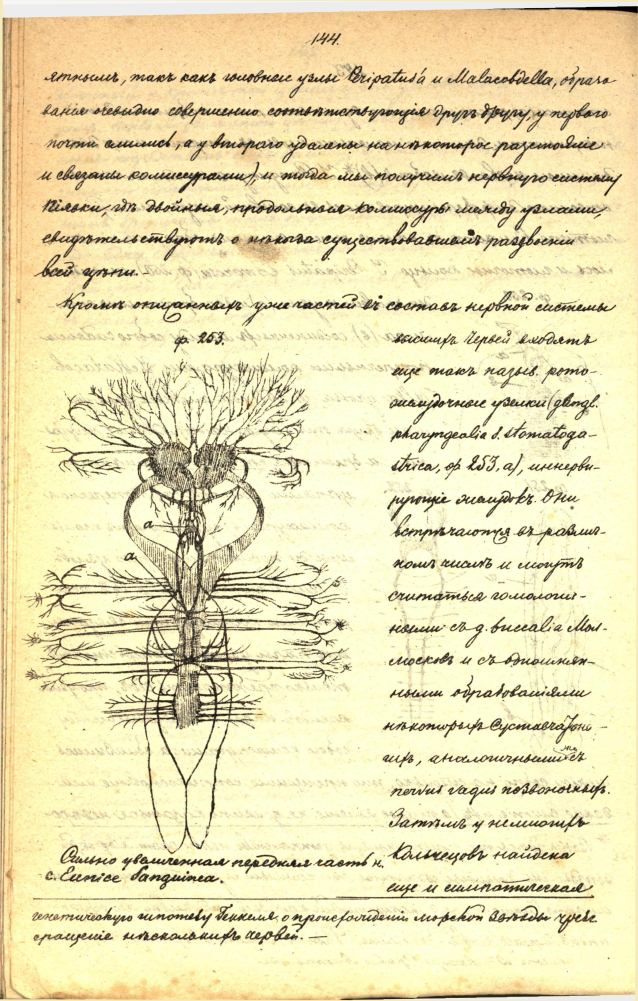 144.
ятнымъ, такъ какъ головные узлы Peripatus'a и Malacobdella, образо
ванія очевидно совершенно соотвѣтствующія другъ другу, у перваго
почти слились, а у втораго удалены на нѣкоторое разстояніе
и связаны комиссурами), и тогда мы получимъ нервную систему
піявки, гдѣ двойныя, продольныя комиссуры между узлами,
свидѣтельствуютъ о нѣкогда существовавшемъ раздвоеніи
всей цѣпи.—
Кромѣ описанныхъ уже частей въ составъ нервной системы
ф. 253.
высшихъ червей входятъ
еще такъ назыв. рото-
желудочные узелки (gangl.
pharyngealia s. stomatoga-
strica, ф 253, a), иннерви-
рующіе желудокъ. Они
встрѣчаются въ различ-
номъ числѣ и могутъ
считаться гомологич-
ными съ g. buccalia Мол-
люсковъ и съ одноимян-
ными образованіями
нѣкоторыхъ Суставчатоно-
гихъ, аналогичными съ
nervus vagus позвоночныхъ.
Затѣмъ у немногихъ
Кольчецовъ найдена
еще и симпатическая
a
a
Сильно увеличенная передняя часть н.
с. Eunice Sanguinea.
генетическую гипотезу Геккеля о происхожденіи морской звѣзды чрезъ
сращеніе нѣсколькихъ червей.—